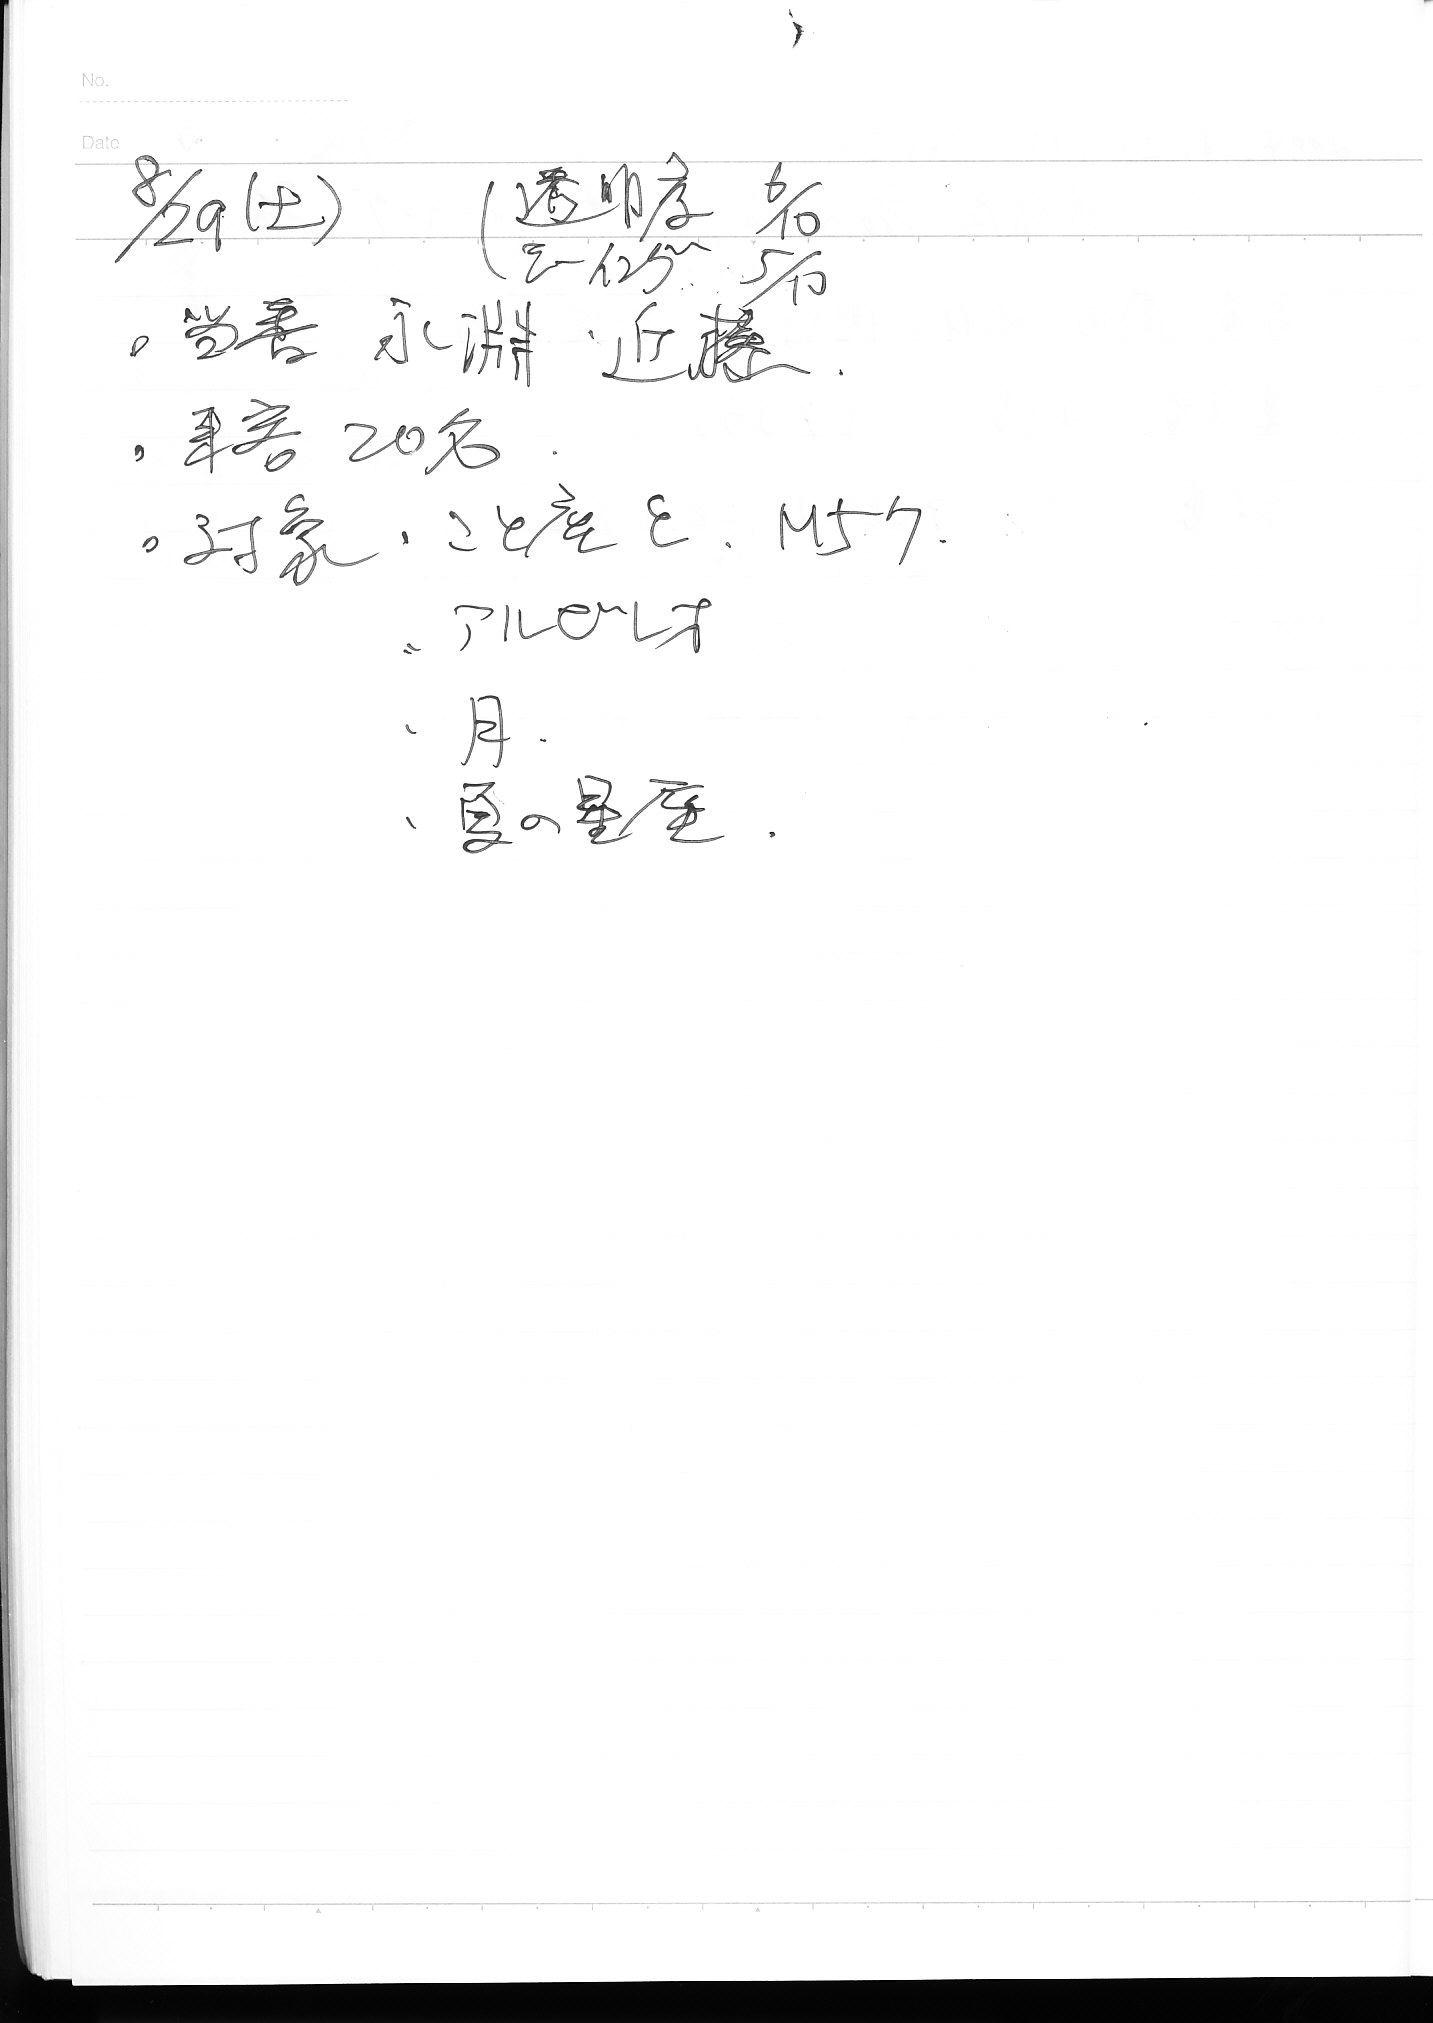 No.
Date
8/29(土) (透明度 6/10
シーイング 5/10
・当番 永淵・近藤.
・来客 20名.
・対象・こと座ε. M57.
・アルビレオ
・月.
・夏の星座.